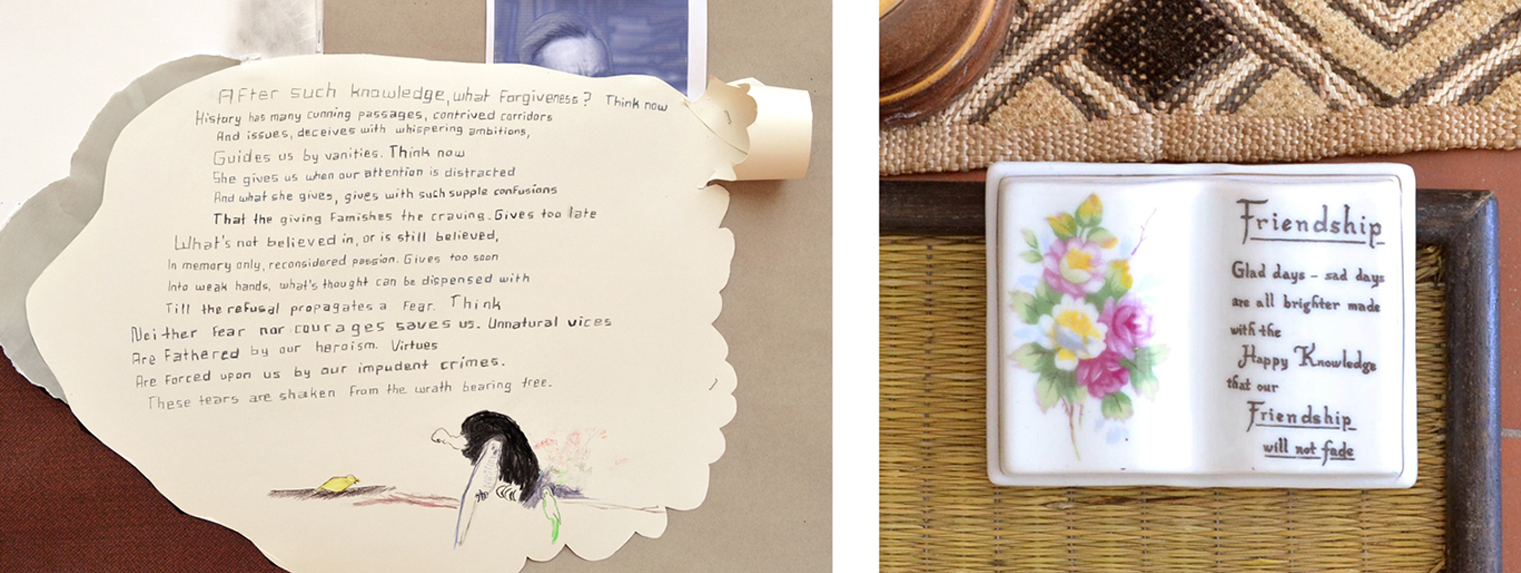 After such knowledge, what forgiveness? Think now
History has many cunning passages, contrived corridors
And issues, deceives with whispering ambitions,
Guides us by vanities. Think now
She gives us when our attention is distracted
And what she gives, gives with such supple confusions
That the giving famishes the craving. Gives too late
What's not believed in, or is still believed,
In memory only, reconsidered passion. Gives too soon
Into weak hands, what's thought can be dispensed with
Till the refusal propagates a fear. Think
Neither fear nor courages saves us. Unnatural vices
Are fathered by our heroism. Virtues
Are forced upon us by our impudent crimes.
These tears are shaken from the wrath bearing tree.
Friendship
Glad days - sad days
are all brighter made
with the
Happy Knowledge
that our
Friendship
will not fade